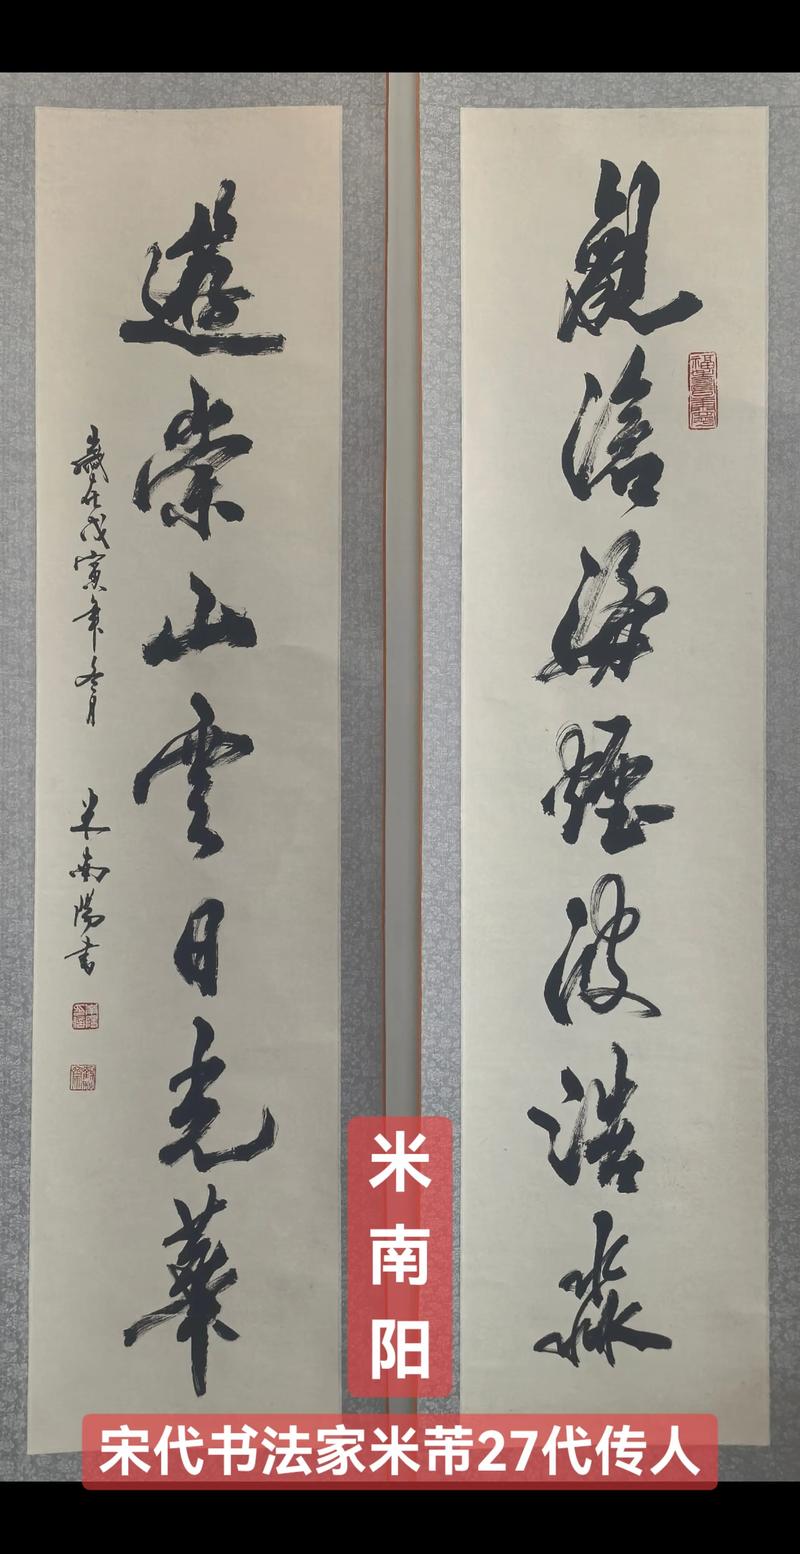 觀滄海煙波浩淼
遊崇山雲日光華
歲在戊寅年冬月 米南陽書
米南阳
宋代书法家米芾27代传人